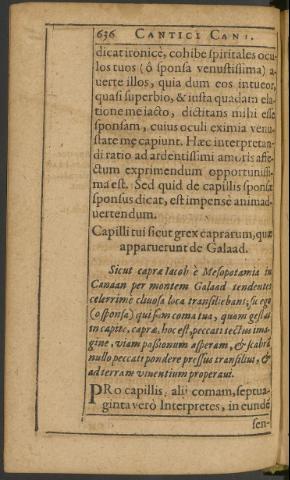 636 CANTICI CANT.
dicat ironicè, cohibe spiritales ocu
los tuos (ô sponsa venustissima) a-
uerte illos, quia dum eos intueor,
quasi superbio, & iusta quadam ela-
tione me iacto, dictitans mihi esse
sponsam, cuius oculi eximia venu-
state me capiunt. Hæc interpretan-
di ratio ad ardentissimi amoris affe-
ctum exprimendum opportunissi-
ma est. Sed quid de capillis sponsæ
sponsus dicat, est impense animad-
uertendum.
Capilli tui sicut grex caprarum, quæ
apparuerunt de Galaad.
Sicut capræ Iacob è Mesopotamia in
Canaan per montem Galaad tendentes
celerrimè cliuosa loca transiliebant; sic ego
(o sponsa) qui sum coma tua, quam gestas
in capite, capræ, hoc est, peccati tectus ima-
gine, viam passionum asperam, & scabrā
nullo peccati pondere pressus transilius, &
ad terram viuentium properaui.
PRo capillis, alij comam, septua-
ginta verò Interpretes, in eundē
sen-